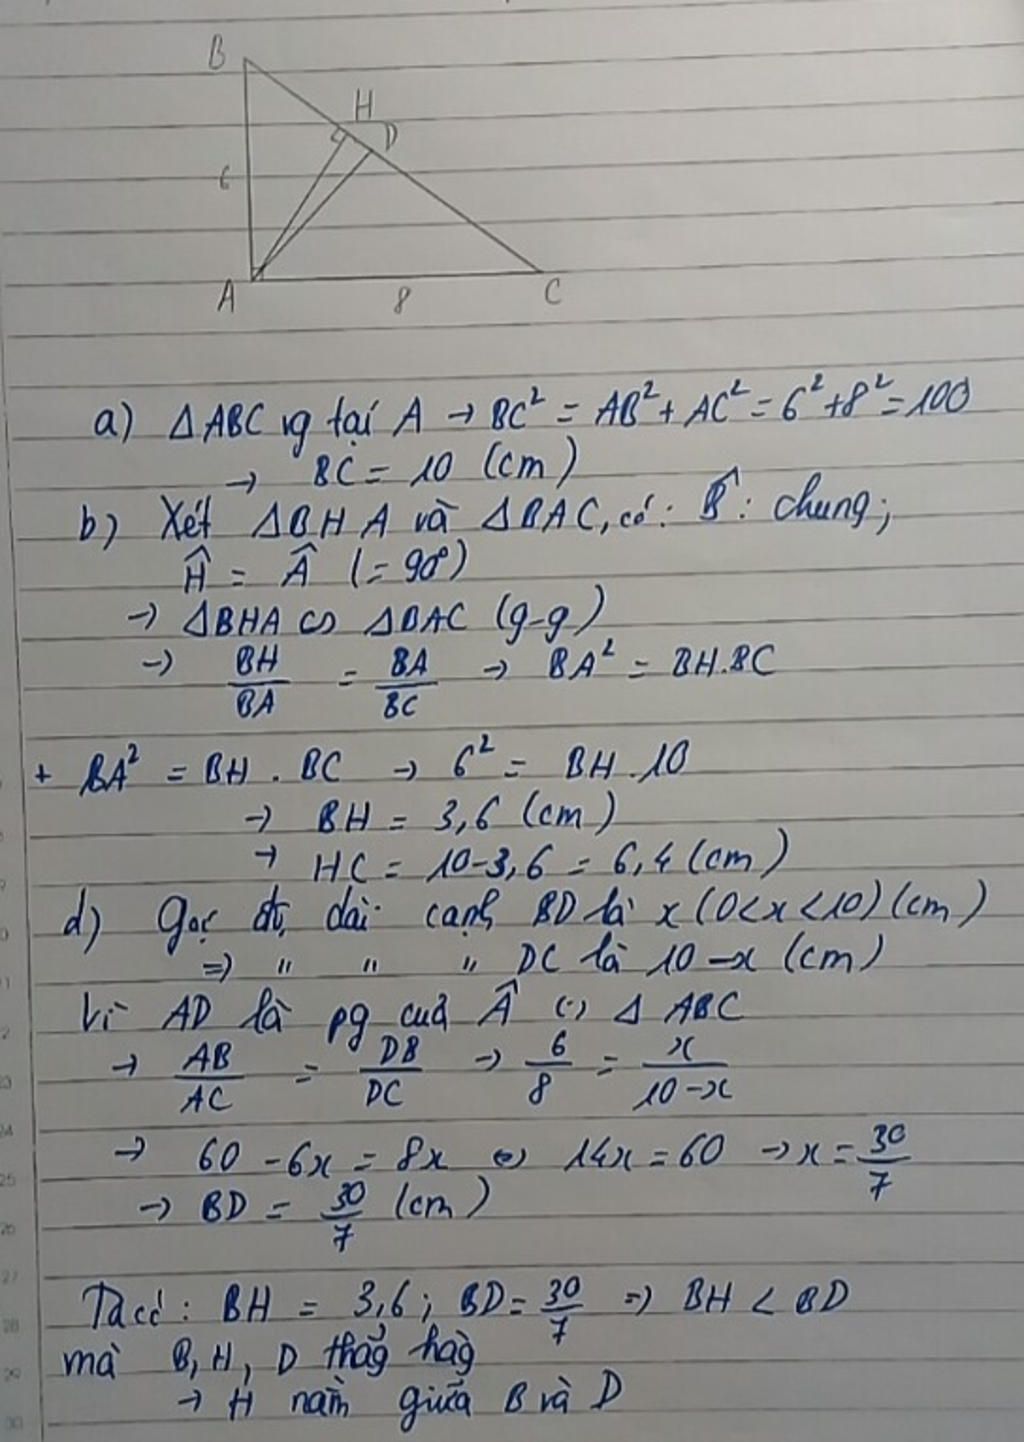 B
H
D
6
A
8
C
a) ΔABC vg tại A → BC² = AB² + AC² = 6² + 8² = 100
→ BC = 10 (cm)
b) Xét ΔBHA và ΔBAC, có: B̂: chung;
Ĥ = Â (= 90°)
→ ΔBHA ∽ ΔBAC (g-g)
→ BH/BA = BA/BC → BA² = BH.BC
+ BA² = BH . BC → 6² = BH .10
→ BH = 3,6 (cm)
→ HC = 10-3,6 = 6,4 (cm)
d) Gọi độ dài cạnh BD là x (0<x<10) (cm)
=> " " " DC là 10-x (cm)
Vì AD là pg của Â (·) Δ ABC
→ AB/AC = DB/DC → 6/8 = x/10-x
→ 60 - 6x = 8x ⇔ 14x = 60 → x = 30/7
→ BD = 30/7 (cm)
Ta có: BH = 3,6; BD = 30/7 => BH < BD
mà B, H, D thẳg hàg
→ H nằm giữa B và D